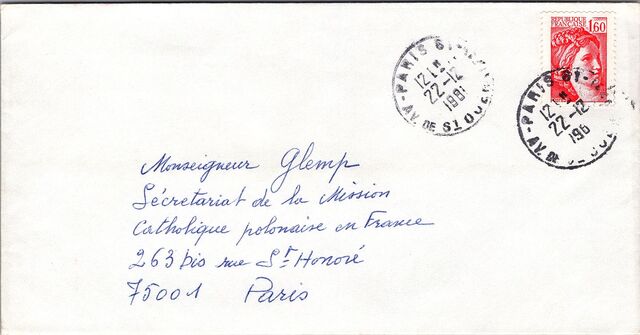 REPUBLIQUE
FRANÇAISE
1,60
PARIS
12 H
22-12
1981
AV. DE ST OUEN
PARIS
12 H
22-12
198
AV. DE
Monseigneur Glemp
Sécretariat de la Mission
Catholique polonaise en France
263 bis rue St Honoré
75001 Paris